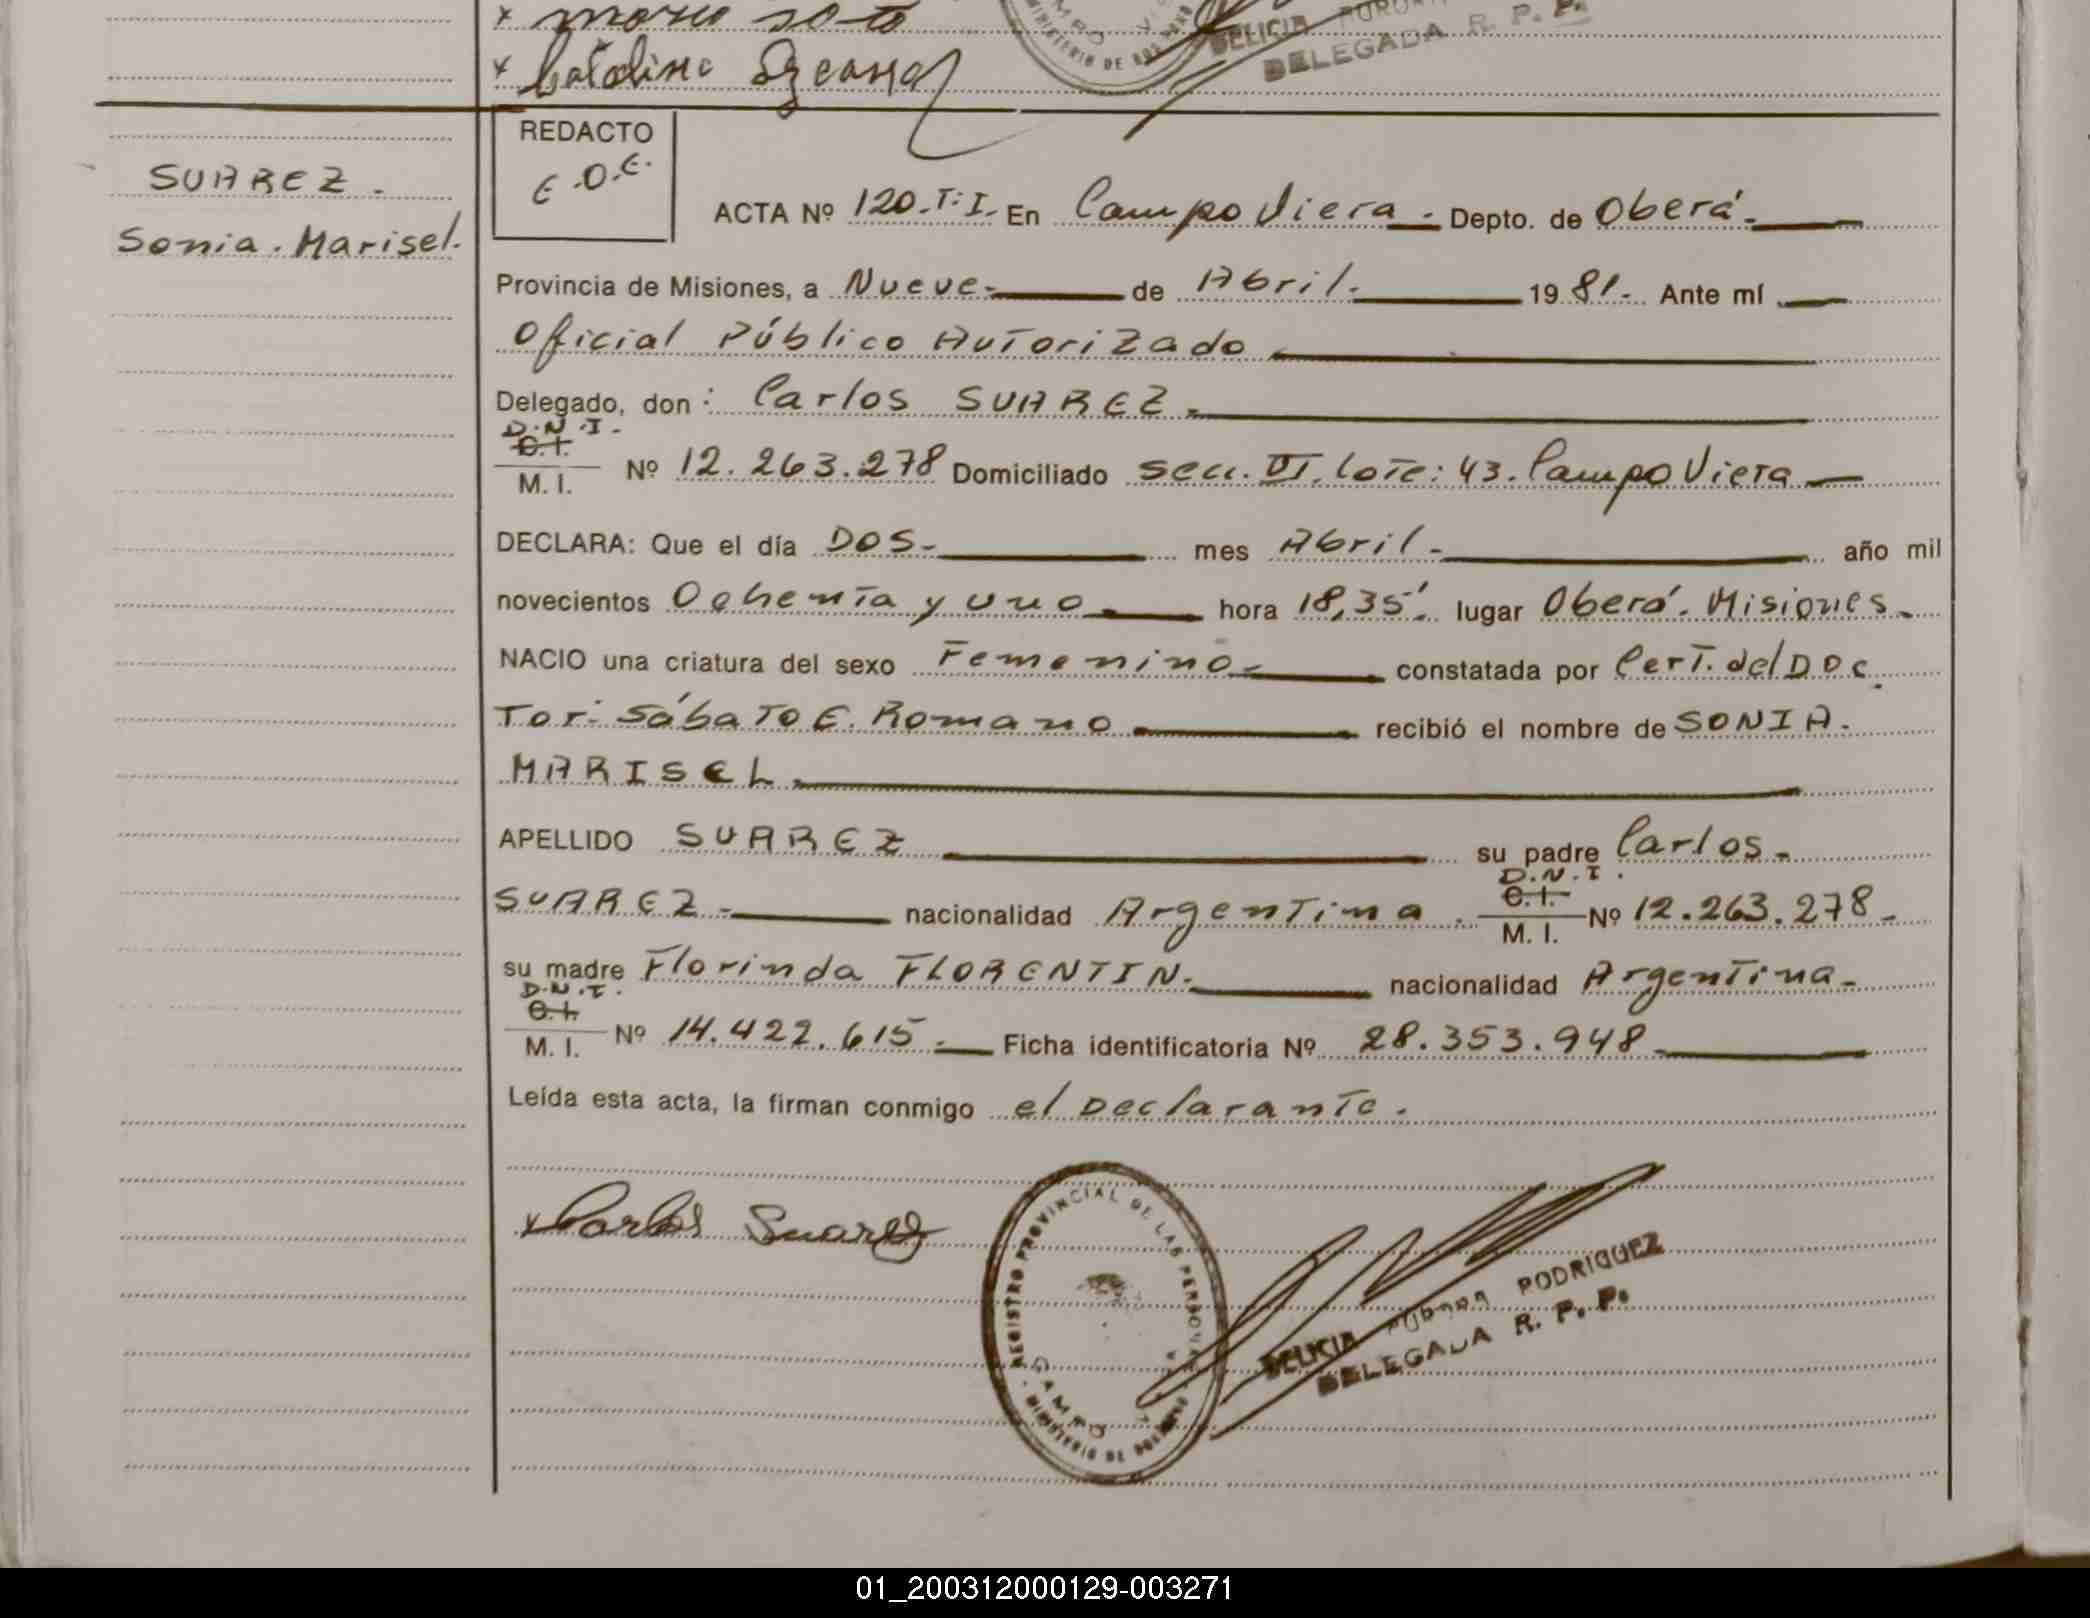 x mario soto
DELICIA
DELEGADA R. P. P.
x Catalina
REDACTO
E.O.E.
SUAREZ.
Sonia. Marisel.
ACTA Nº 120.T:I. En Campo Viera. Depto. de Oberá.
Provincia de Misiones, a Nueve. de Abril. 1981. Ante mí
Oficial Público Autorizado
Delegado, don: Carlos SUAREZ.
D.N.I.
C.I.
M. I. Nº 12.263.278 Domiciliado Secc. VI. Lote: 43. Campo Viera
DECLARA: Que el día DOS. mes Abril. año mil
novecientos Ochenta y uno hora 18,35' lugar Oberá. Misiones.
NACIO una criatura del sexo Femenino. constatada por Cert. del Doc
Tor: Sábato E. Romano recibió el nombre de SONIA.
MARISEL.
APELLIDO SUAREZ su padre Carlos.
D.N.I.
C.I.
SUAREZ. nacionalidad Argentina. M. I. Nº 12.263.278.
su madre Florinda FLORENTIN. nacionalidad Argentina.
D.N.I.
C.I.
M. I. Nº 14.422.615. Ficha identificatoria Nº 28.353.948
Leída esta acta, la firman conmigo el Declarante.
x Carlos Suarez
REGISTRO PROVINCIAL DE LAS PERSONAS
CAMPO
DELICIA RODRIGUEZ
DELEGADA R. P. P.
01_200312000129-003271